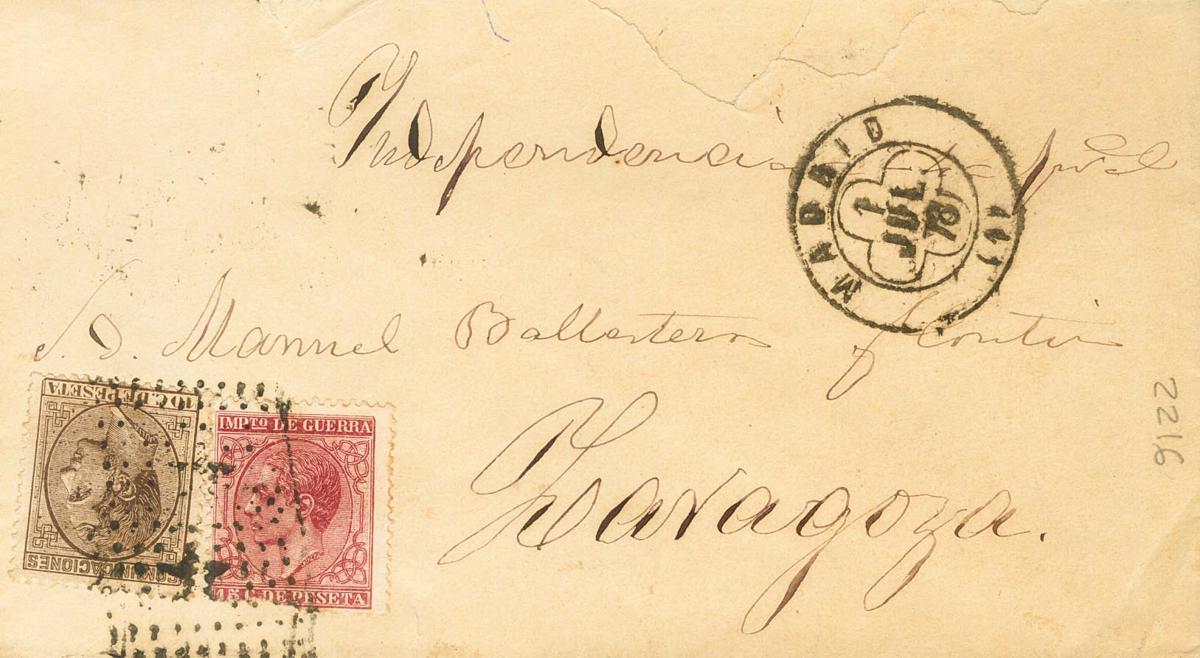 Independencia
MADRID
1
JUL
78
S. D. Manuel Ballesteros y
Zaragoza.
10 C. DE PESETA
COMUNICACIONES
IMPTO DE GUERRA
15 C. DE PESETA
2216